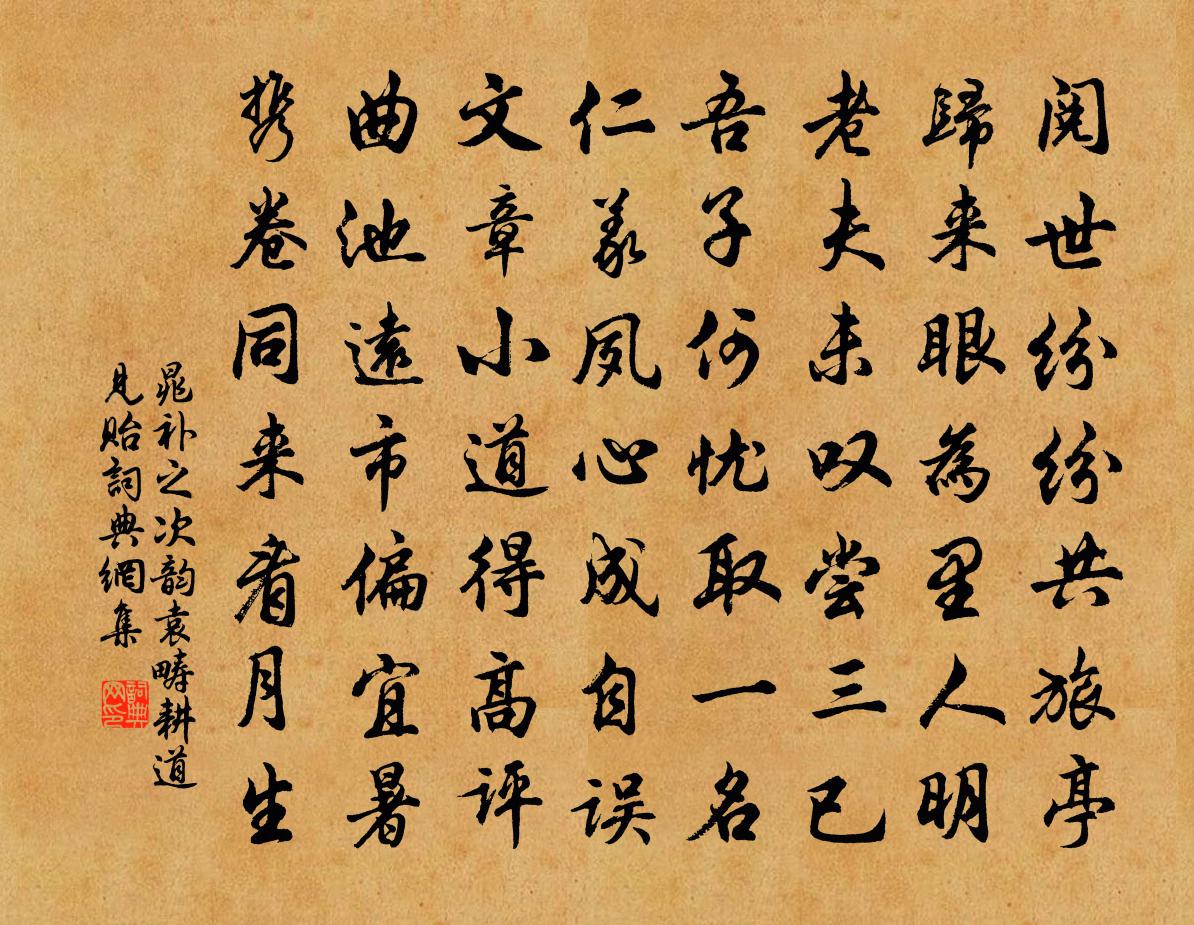 阅世纷纷共旅亭
歸来眼為里人明
老夫未叹尝三已
吾子何忧取一名
仁義夙心成自误
文章小道得高评
曲池遠市偏宜暑
携卷同来看月生
晁补之次韵袁畴耕道
見贻詞典網集
詞典网印